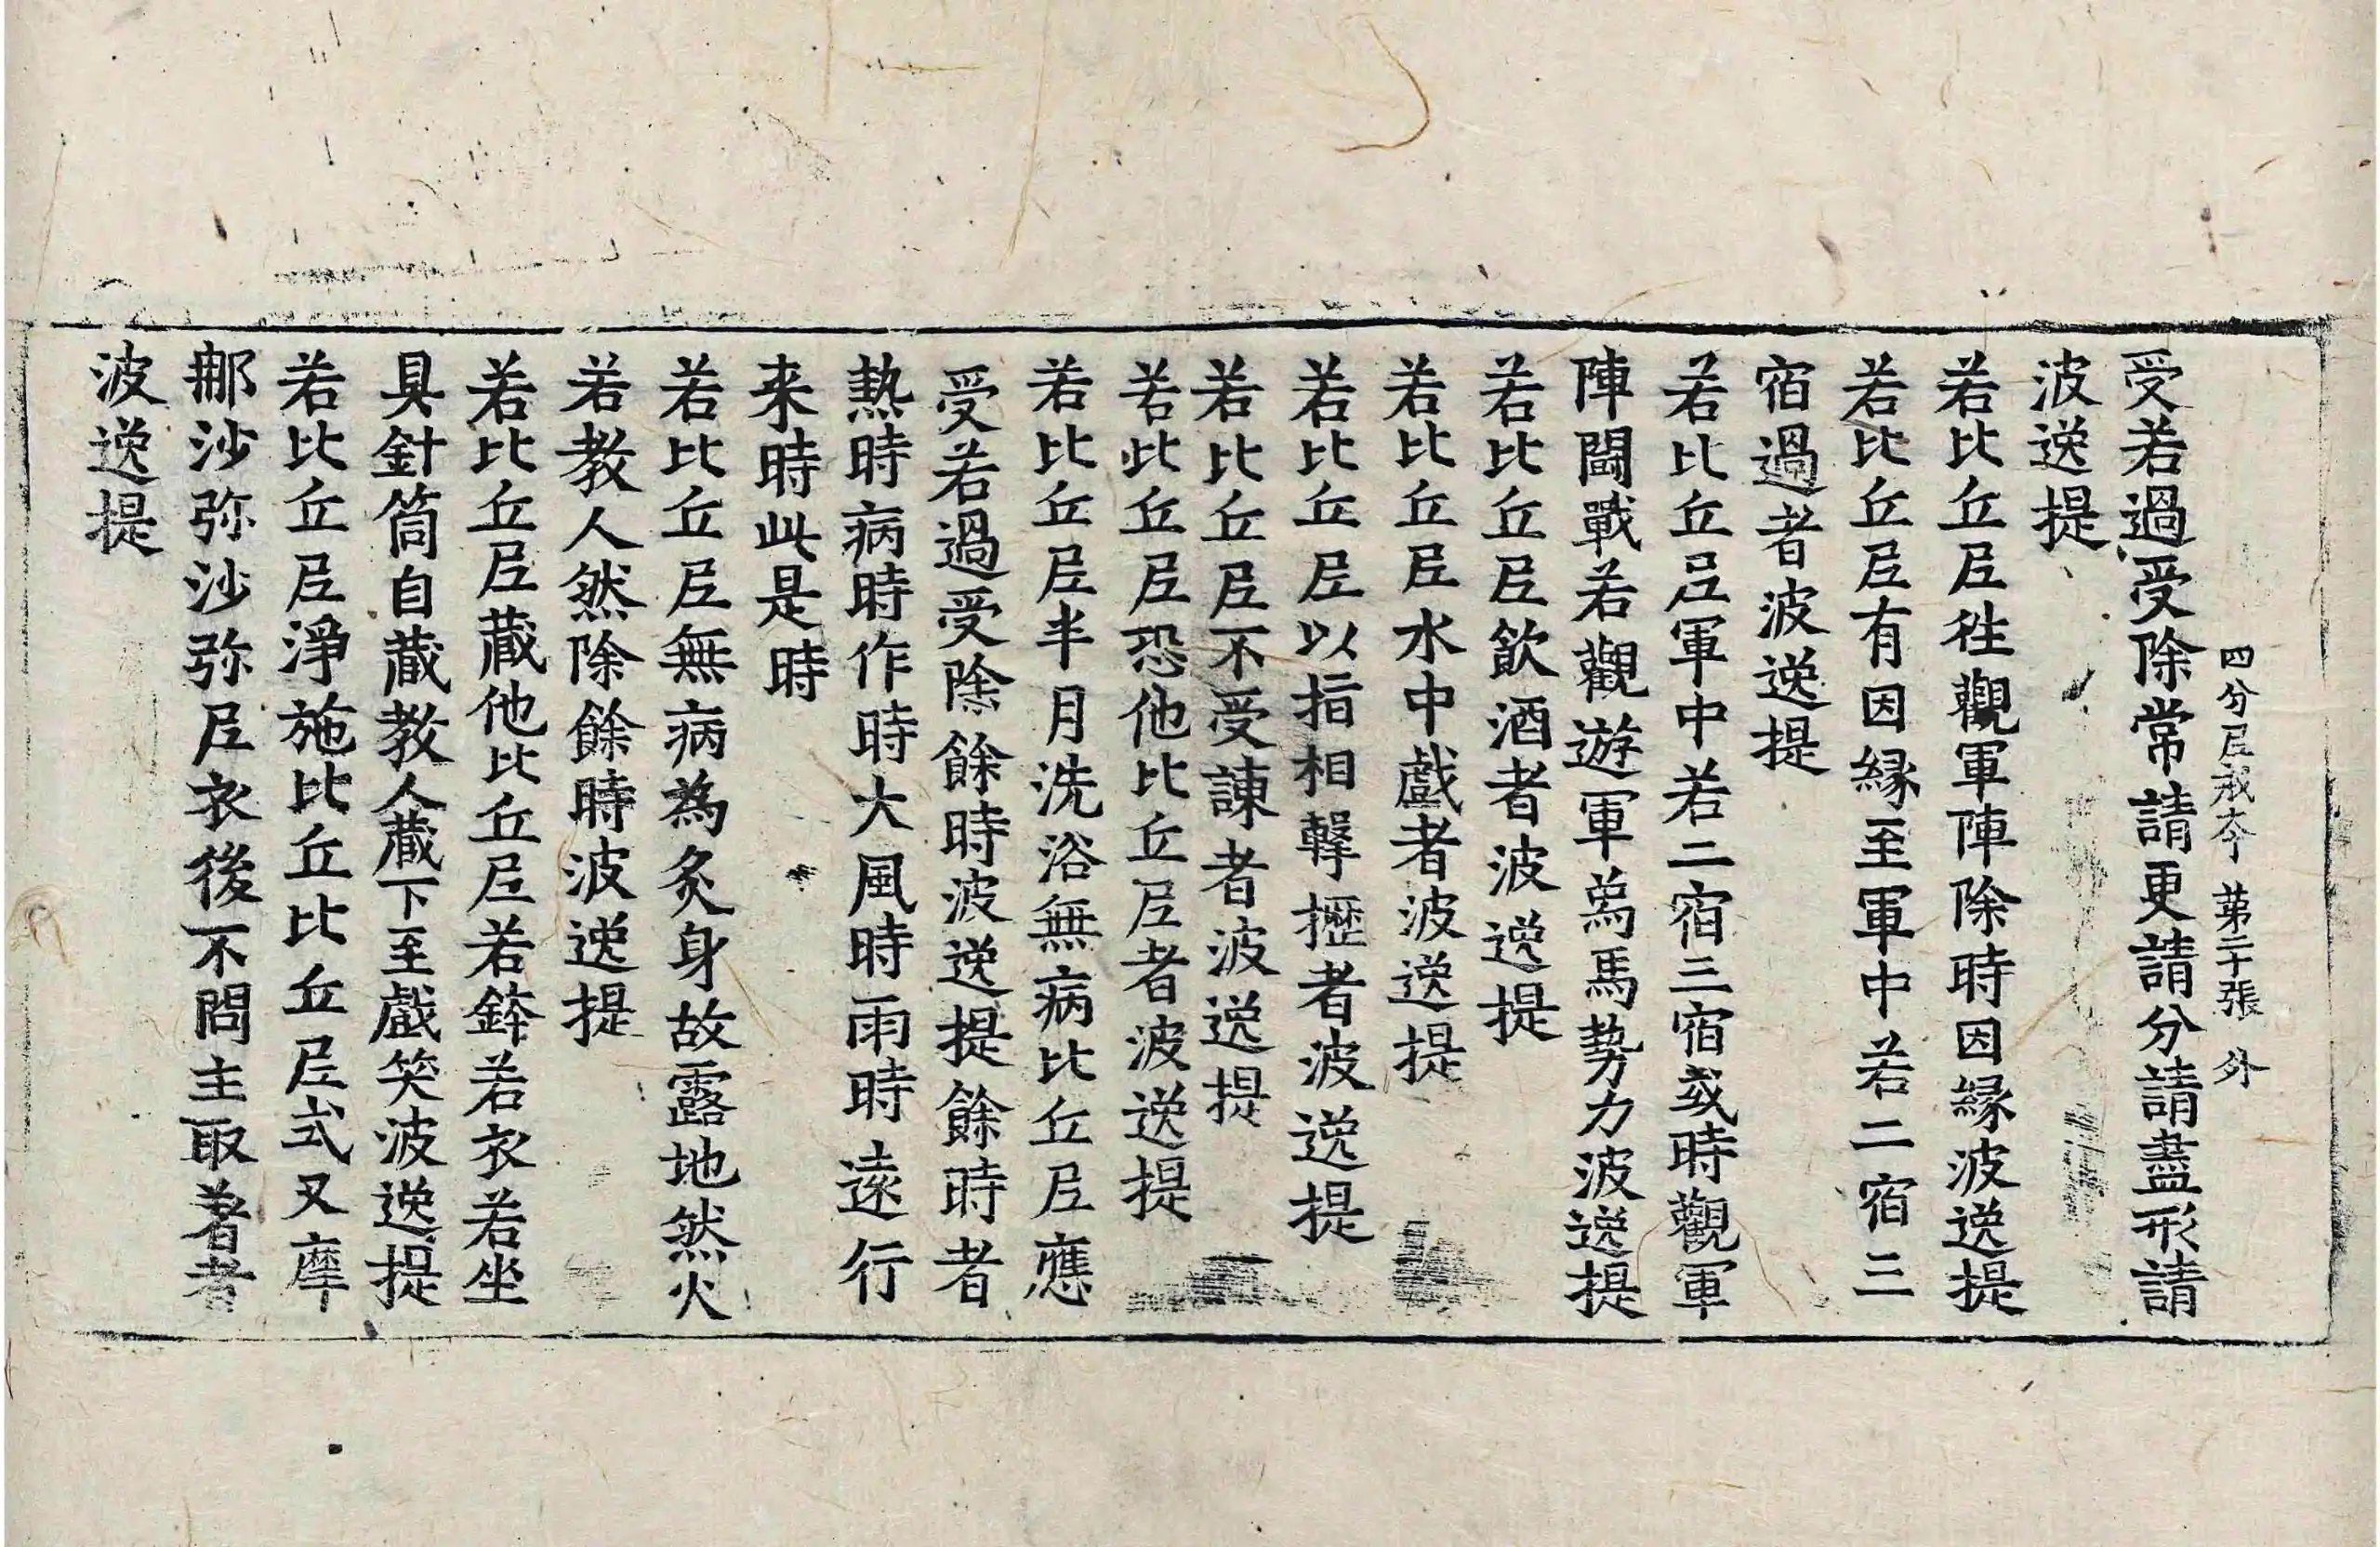 四分尼戒本 第二十張 外
受若過受除常請更請分請盡形請
波逸提
若比丘尼徃觀軍陣除時因縁波逸提
若比丘尼有因縁至軍中若二宿三
宿過者波逸提
若比丘尼軍中若二宿三宿或時觀軍
陣鬪戰若觀遊軍爲馬勢力波逸提
若比丘尼飲酒者波逸提
若比丘尼水中戲者波逸提
若比丘尼以指相擊攊者波逸提
若比丘尼不受諫者波逸提
若比丘尼恐他比丘尼者波逸提
若比丘尼半月洗浴無病比丘尼應
受若過受除餘時波逸提餘時者
熱時病時作時大風時雨時遠行
来時此是時
若比丘尼無病為炙身故露地然火
若教人然除餘時波逸提
若比丘尼藏他比丘尼若鉢若衣若坐
具針筒自藏教人藏下至戲笑波逸提
若比丘尼淨施比丘比丘尼式叉摩
那沙弥沙弥尼衣後不問主取著者
波逸提